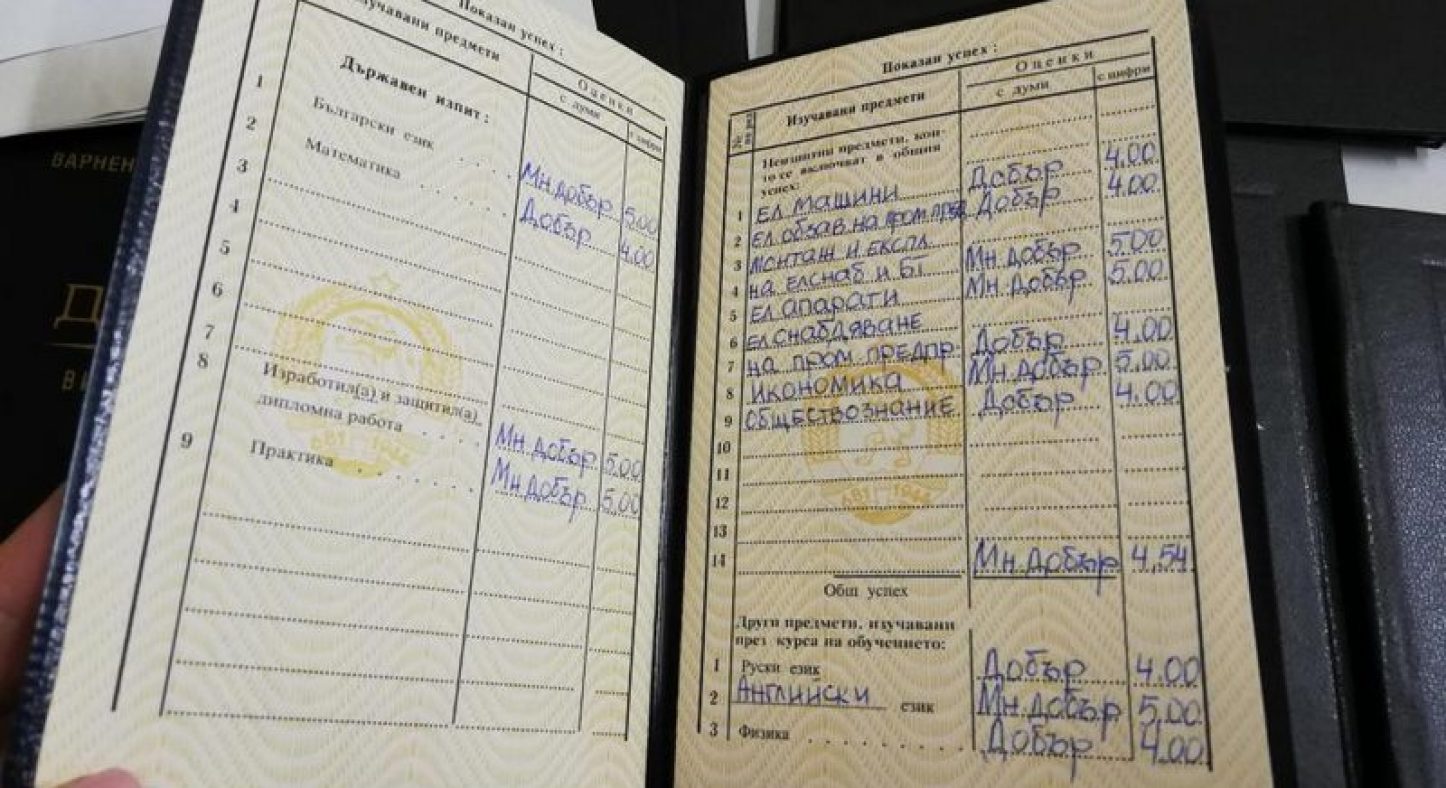 ВАРНЕН
Показан успех :
изучавани предмети
Оценки
с думи
с цифри
Държавен изпит :
1 Български език . . . . Мн.добър 5.00
2 Математика . . . . . Добър 4.00
3
4
5
6
7
8 Изработил(а) и защитил(а)
дипломна работа . . . . Мн.добър 5.00
9 Практика . . . . . . . Мн.добър 5.00
Показан успех :
№
по ред
Изучавани предмети
Оценки
с думи
с цифри
Неизпитни предмети, кои-
то се включват в общия
успех:
1 Ел машини Добър 4.00
2 Ел обзав. на пром. пред Добър 4.00
3 Монтаж и експл.
4 на елснаб и БТ Мн.добър 5.00
5 Ел апарати Мн.добър 5.00
6 Елснабдяване
7 на пром. предпр. Добър 4.00
8 Икономика Мн.добър 5.00
9 Обществознание Добър 4.00
10
11
12
13
14
Общ успех Мн.добър 4,54
Други предмети, изучавани
през курса на обучението:
1 Руски език Добър 4.00
2 Английски език Мн.добър 5.00
3 Физика . . . . . . . . . Добър 4.00
681 1944